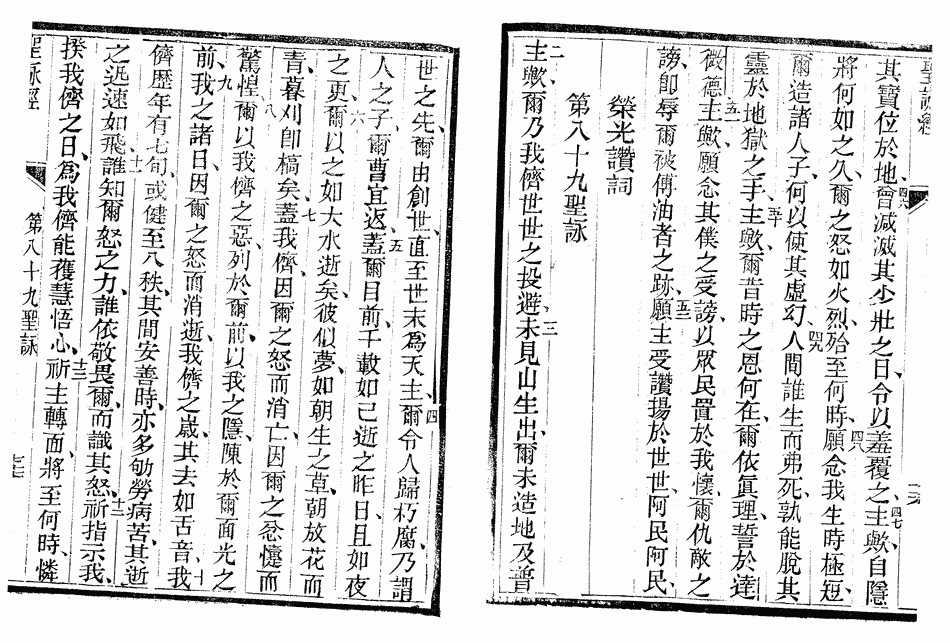 聖詠經
其寶位於地、四六曾減滅其少壯之日、令以羞覆之、四七主歟、自隱
將何如之久、爾之怒如火烈、殆至何時、四八願念我生時極短、
爾造諸人子、何以使其虛幻、四九人間誰生而弗死、孰能脫其
靈於地獄之手、五十主歟、爾昔時之恩何在、爾依眞理誓於達
微德、五一主歟、願念其僕之受謗、以眾民置於我懷、爾仇敵之
謗、卽辱爾被傅油者之跡、五二願主受讚揚於世世、阿民阿民、
榮光讚詞
第八十九聖詠
二主歟、爾乃我儕世世之投避、三未見山生出、爾未造地及普
世之先、爾由創世、直至世末爲天主、四爾令人歸朽腐、乃謂
人之子、爾曹宜返、五蓋爾目前、千載如已逝之昨日、且如夜
之更、六爾以之如大水逝矣、彼似夢、如朝生之草、朝放花而
青、暮刈卽槁矣、七蓋我儕、因爾之怒而消亡、因爾之忿懥而
驚惶、八爾以我儕之惡、列於爾前、以我之隱、陳於爾面光之
前、九我之諸日、因爾之怒而消逝、我儕之歲、其去如舌音、十我
儕歷年有七旬、或健至八秩、其間安善時、亦多劬勞病苦、其逝
之迅速如飛、十一誰知爾怒之力、誰依敬畏爾、而識其怒、十二祈指示我、
揆我儕之日、爲我儕能獲慧悟心、十三祈主轉面、將至何時、憐
聖詠經
第八十九聖詠